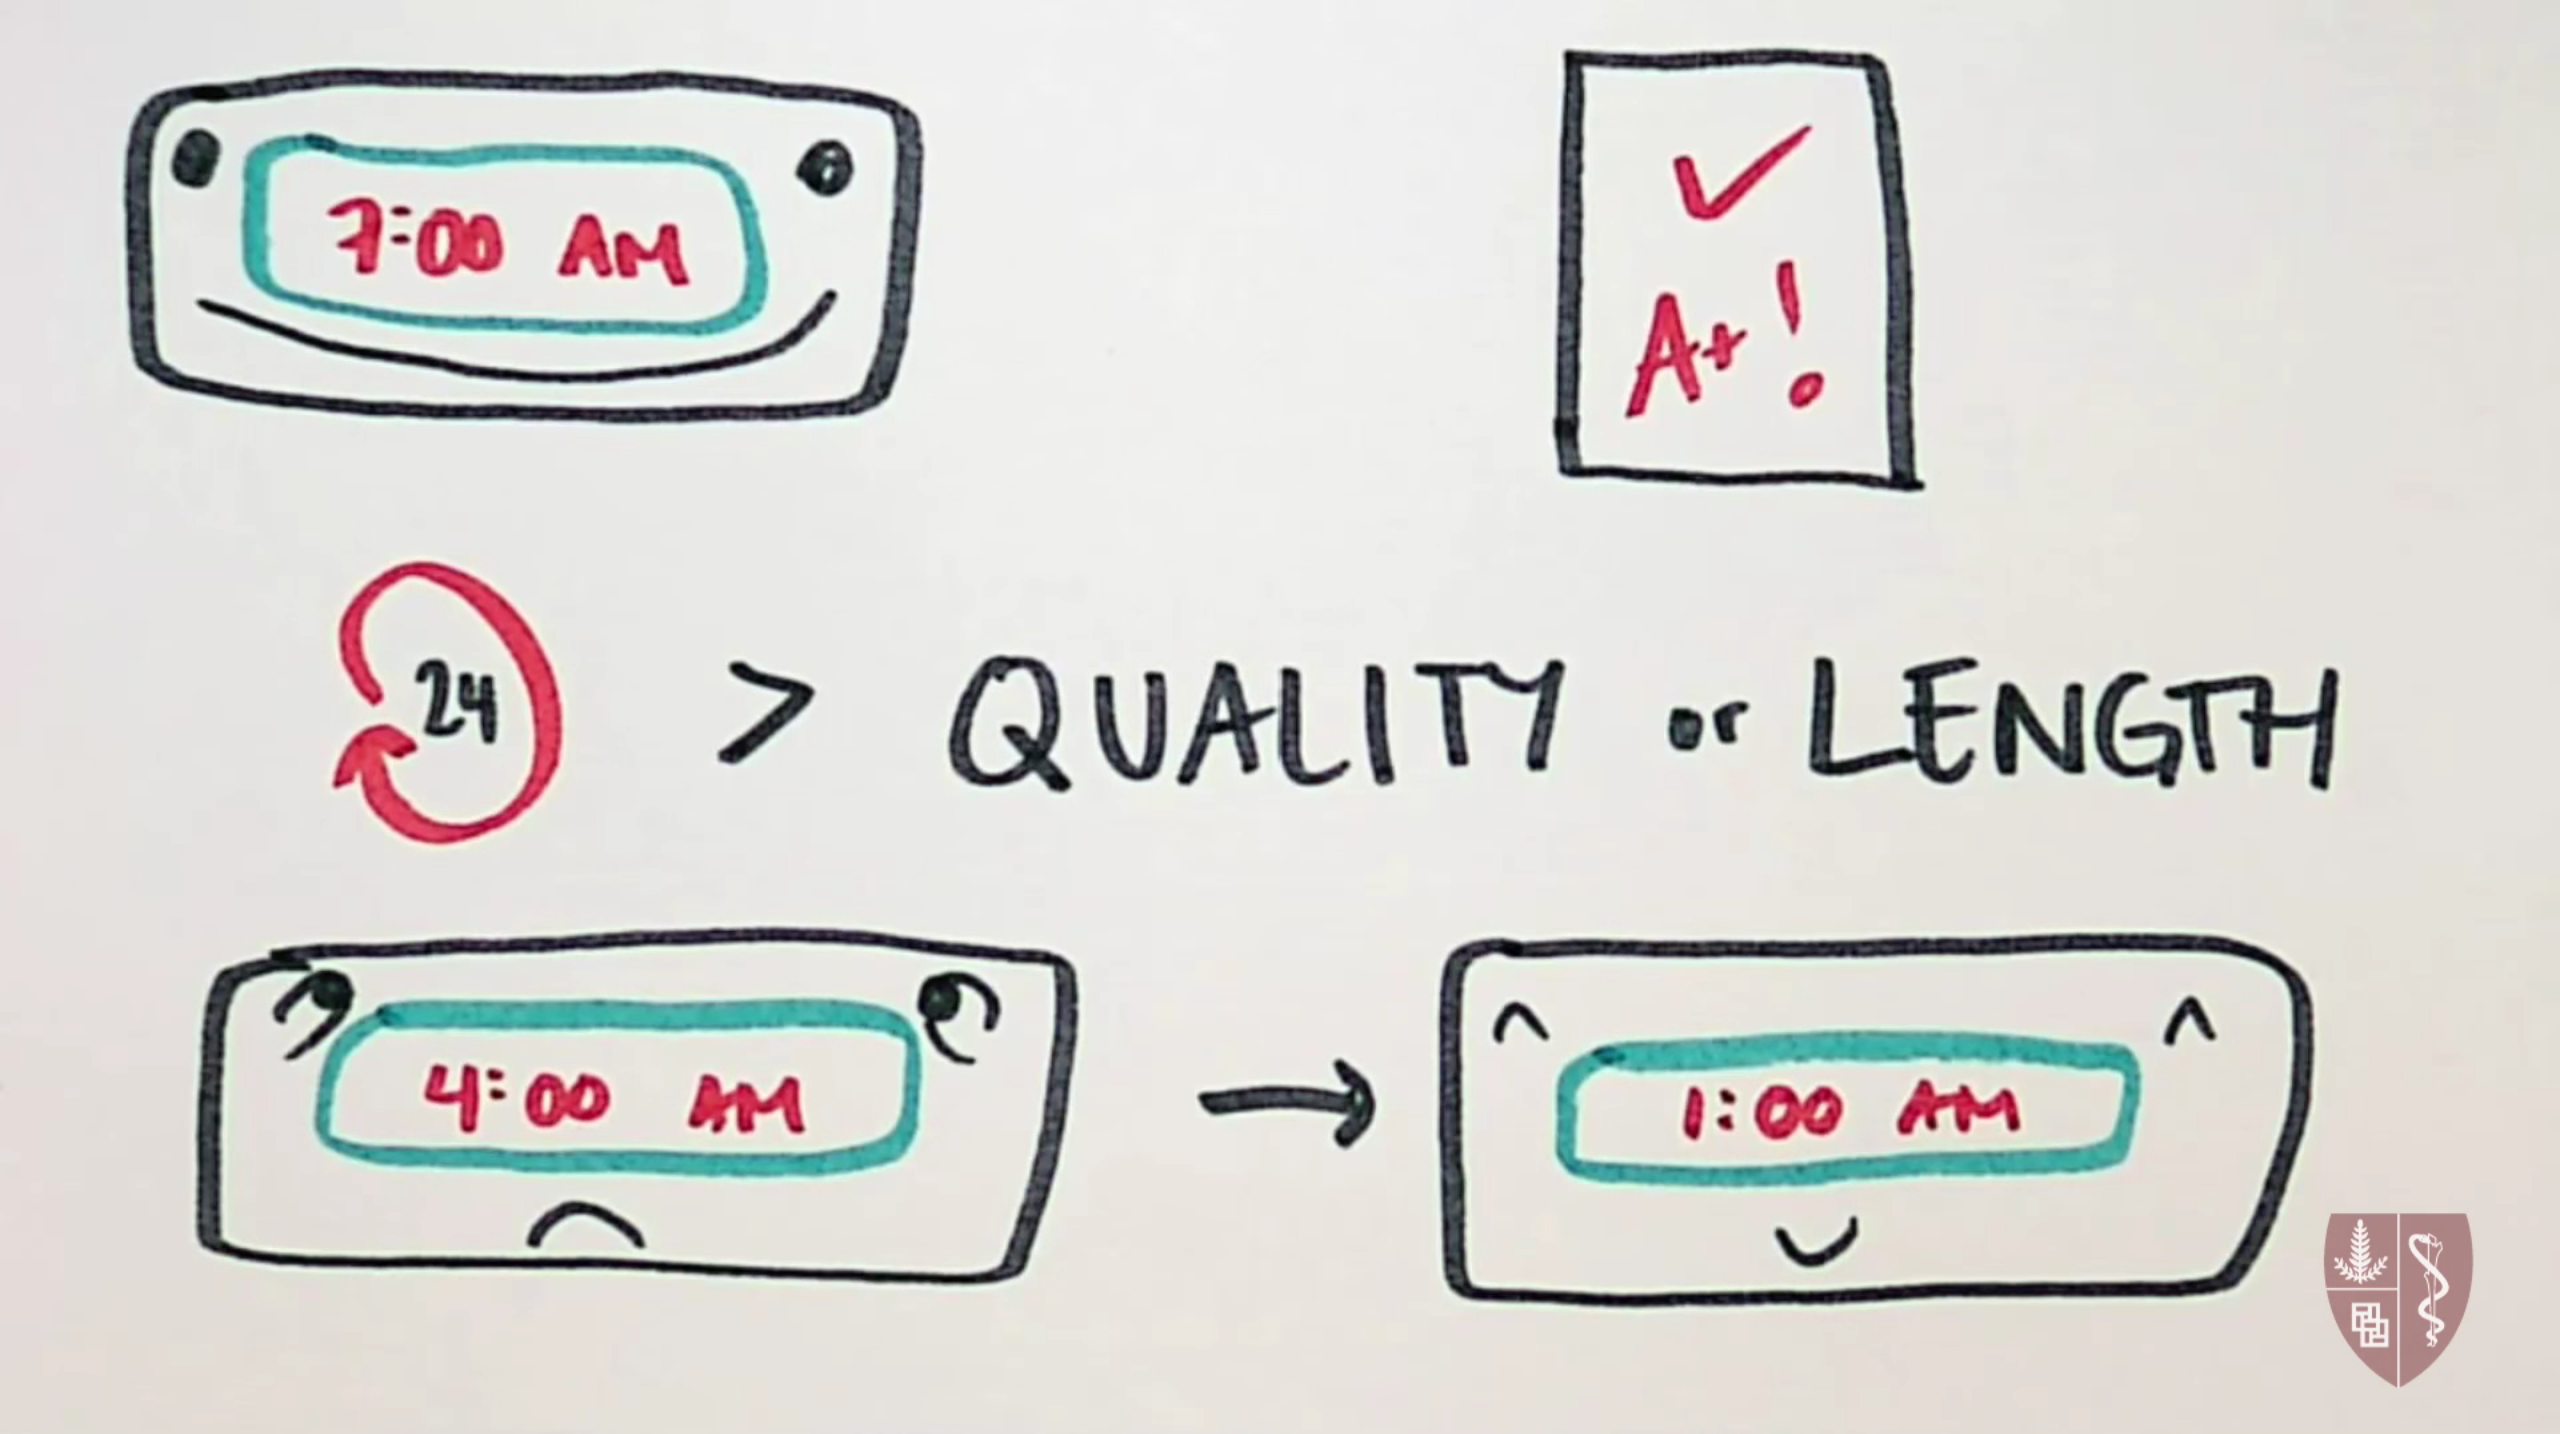 7:00 AM
A+!
24 > QUALITY or LENGTH
4:00 AM
1:00 AM